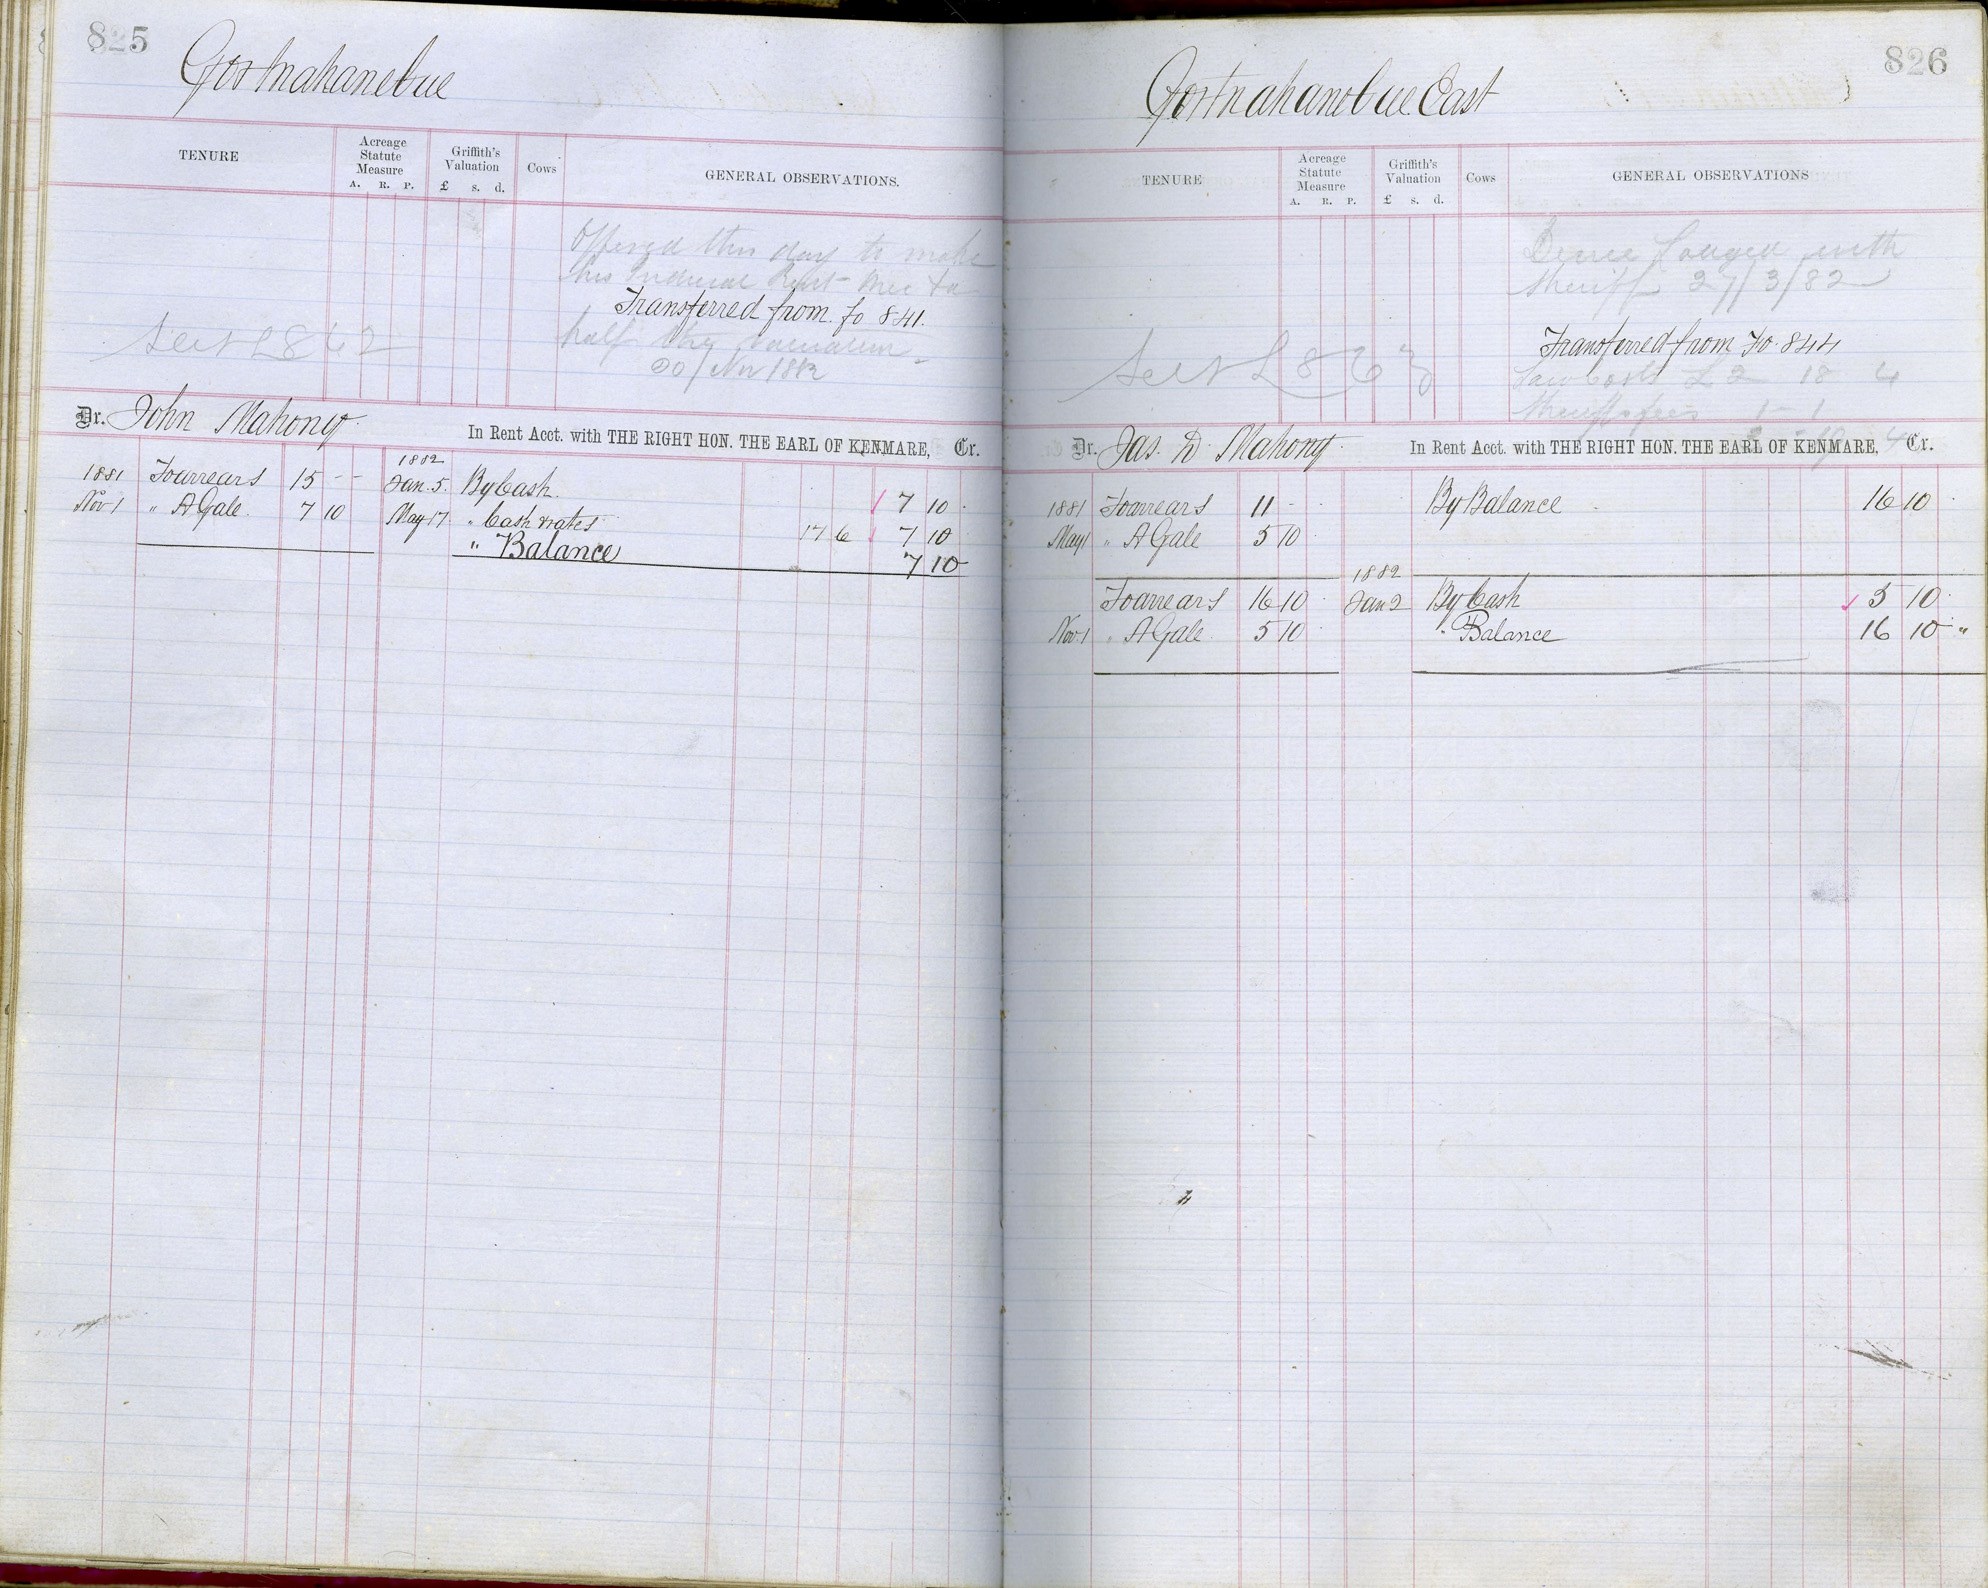 825
Gortnahanebue
TENURE
Acreage Statute Measure
A. R. P.
Griffith's Valuation
£ s. d.
Cows
GENERAL OBSERVATIONS.
Offered this day to make
Transferred from fo 841.
half the
20/Nov 1882
See L 862
Dr. John Mahony In Rent Acct. with THE RIGHT HON. THE EARL OF KENMARE, Cr.
1881 To arrears 15 - - 1882 Jan. 5. By Cash. 7 10 .
Nov 1 " A Gale. 7 10 May 17 " Cash rates 17 6 7 10
" Balance 7 10
826
Gortnahanebue East
TENURE
Acreage Statute Measure
A. R. P.
Griffith's Valuation
£ s. d.
Cows
GENERAL OBSERVATIONS
Decree lodged with
Sheriff 27/3/82
Transferred from Fo 844
Law Costs £2 18 4
Sheriffs fees 1 - 1
See L 863
Dr. Jas. D. Mahony In Rent Acct. with THE RIGHT HON. THE EARL OF KENMARE, Cr.
1881 To arrears 11 - - By Balance 16 10 .
May 1 " A Gale 5 10
To arrears 16 10 1882 Jan 2 By Cash 5 10 .
Nov 1 " A Gale 5 10 " Balance 16 10 "